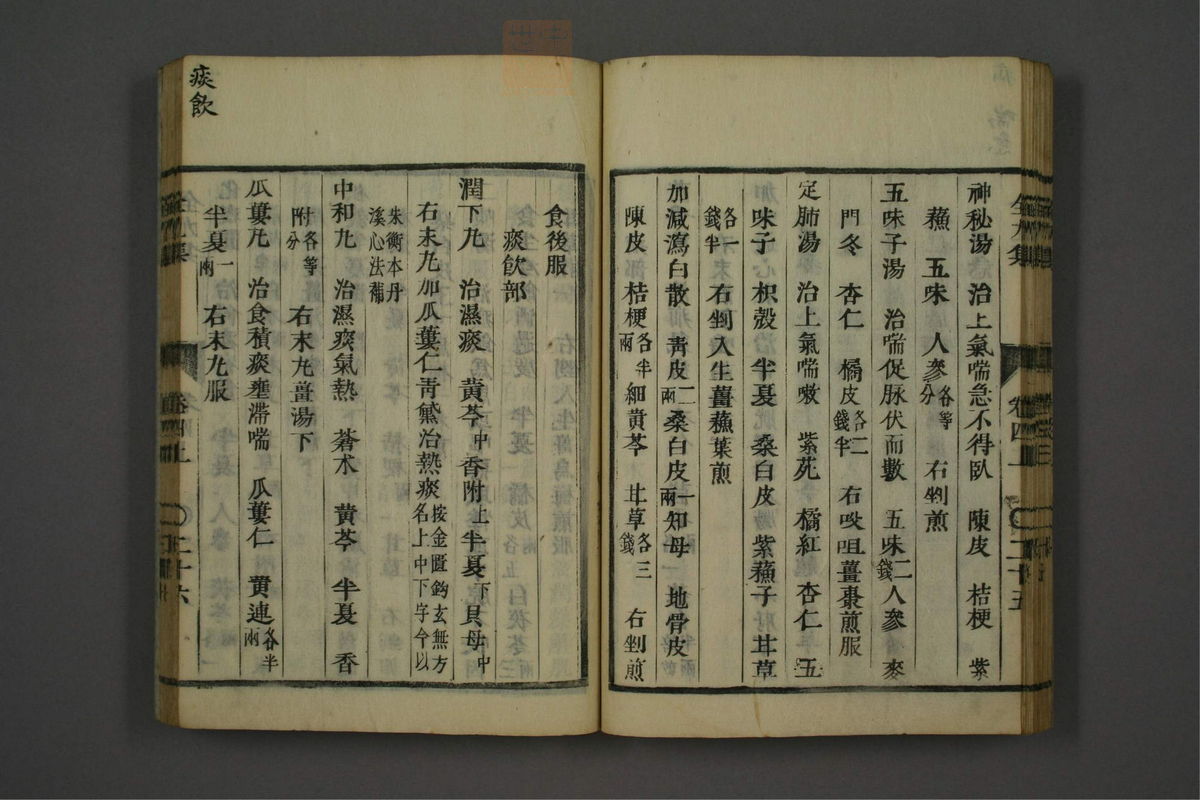 神秘湯　治上氣喘急不得臥　陳皮　桔梗　紫
蘓　五味　人參各等分　右剉煎
五味子湯　治喘促脉伏而數　五味二錢人參　麥
門冬　杏仁　橘皮各二錢半　右㕮咀薑棗煎服
定肺湯　治上氣喘嗽　紫苑　橘紅　杏仁　五
味子　枳殼　半夏　桑白皮　紫蘓子　甘草
各一錢半　右剉入生薑蘓葉煎
加減瀉白散　青皮二兩桑白皮一兩知母　地骨皮
陳皮　桔梗各半兩　細黄芩　甘草各三錢　右剉煎
全九集
卷四上
二十五
食後服
痰飲部
潤下丸　治濕痰　黄芩中香附上半夏下貝母中
右末丸加瓜蔞仁青黛治熱痰按金匱鈎玄無方名上中下字今以
朱衡本丹溪心法補
中和丸　治濕痰氣熱　蒼术　黄芩　半夏　香
附各等分　右末丸薑湯下
瓜蔞丸　治食積痰壅滯喘　瓜蔞仁　黄連各半兩
半夏一兩　右末丸服
全九集
卷四上
二十六
痰飲